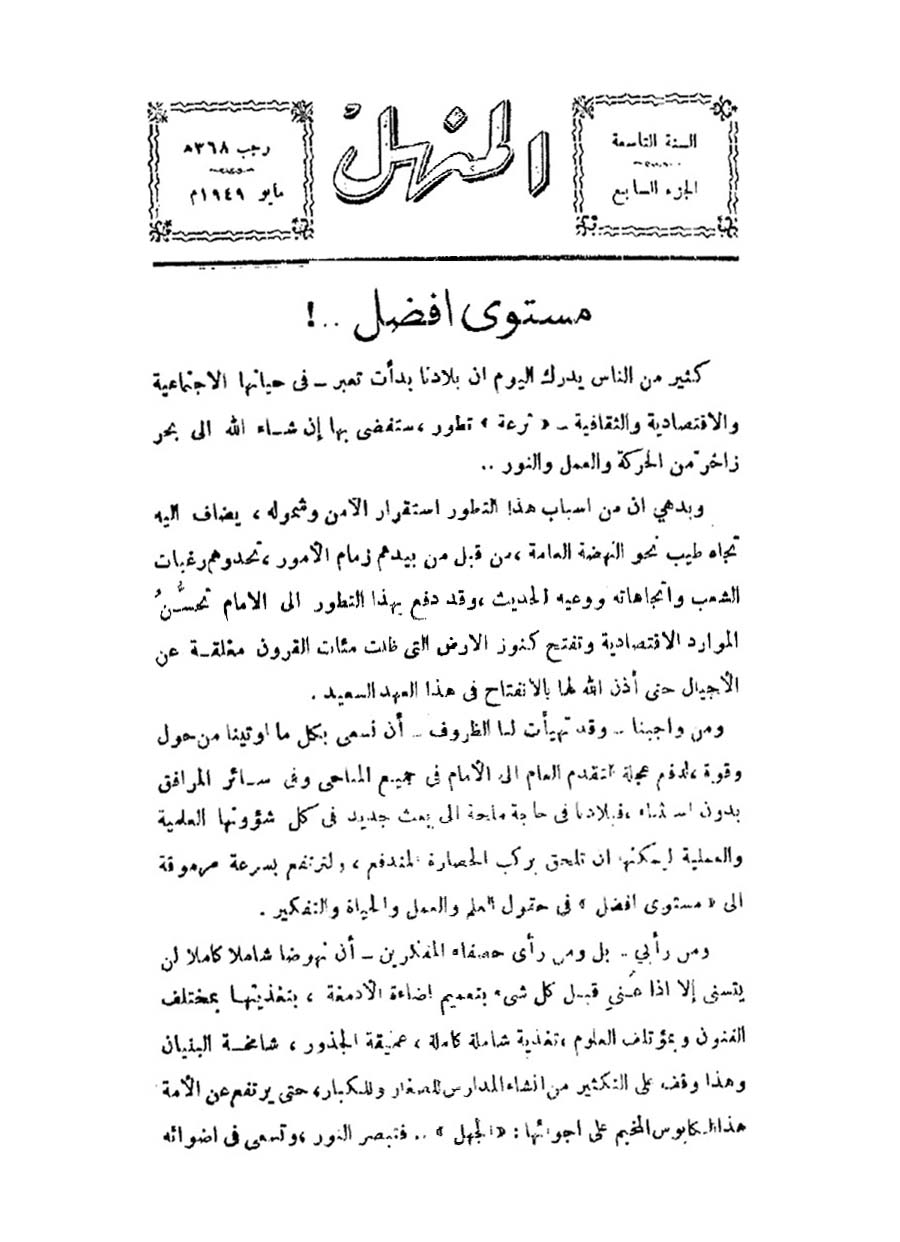 السنة التاسعة
الجزء السابع
المنهل
رجب ٣٦٨ه
مايو ١٩٤٩م
مستوى افضل ..!
كثير من الناس يدرك اليوم ان بلادنا بدأت تعبر ــ فى حياتها الاجتماعية
والاقتصادية والثقافية ــ « ترعة » تطور ، ستفضى بها إن شاء الله الى بحر
زاخر من الحركة والعمل والنور ..
وبدهي ان من اسباب هذا التطور استقرار الأمن وشموله ، يضاف اليه
تجاه طيب نحو النهضة العامة ، من قبل من بيدهم زمام الأمور ، تحدوهم رغبات
الشعب واتجاهاته ووعيه الحديث ، وقد دفع بهذا التطور الى الامام تحسُّنُ
الموارد الاقتصادية وتفتح كنوز الارض التى ظلت مئات القرون مغلقة عن
الأجيال حتى أذن الله لها بالانفتاح فى هذا العهد السعيد .
ومن واجبنا .. وقد تهيأت لنا الظروف .. أن نسعى بكل ما اوتينا من حول
وقوة ، لدفع عجلة التقدم العام الى الأمام فى جميع المناحى وفى سائر المرافق
بدون استثناء ، فبلادنا فى حاجة ملحة الى بعث جديد فى كل شؤونها العلمية
والعملية ليمكنها ان تلحق بركب الحضارة المندفع ، ولترتفع بسرعة مرموقة
الى « مستوى افضل » فى حقول العلم والعمل والحياة والتفكير .
ومن رأيي .. بل ومن رأى حصفاء المفكرين ــ أن نهوضا شاملا كاملا لن
يتسنى إلا اذا عُني قبل كل شىء بتعميم اضاءة الأدمغة ، بتغذيتها بمختلف
الفنون وبمؤتلف العلوم ، تغذية شاملة كاملة ، عميقة الجذور ، شامخة البنيان
وهذا وقف على التكثير من انشاء المدارس للصغار وللكبار ، حتى يرتفع عن الأمة
هذا الكابوس المخيم على اجوائها : « الجهل » .. فتبصر النور ، وتسعى فى اضوائه